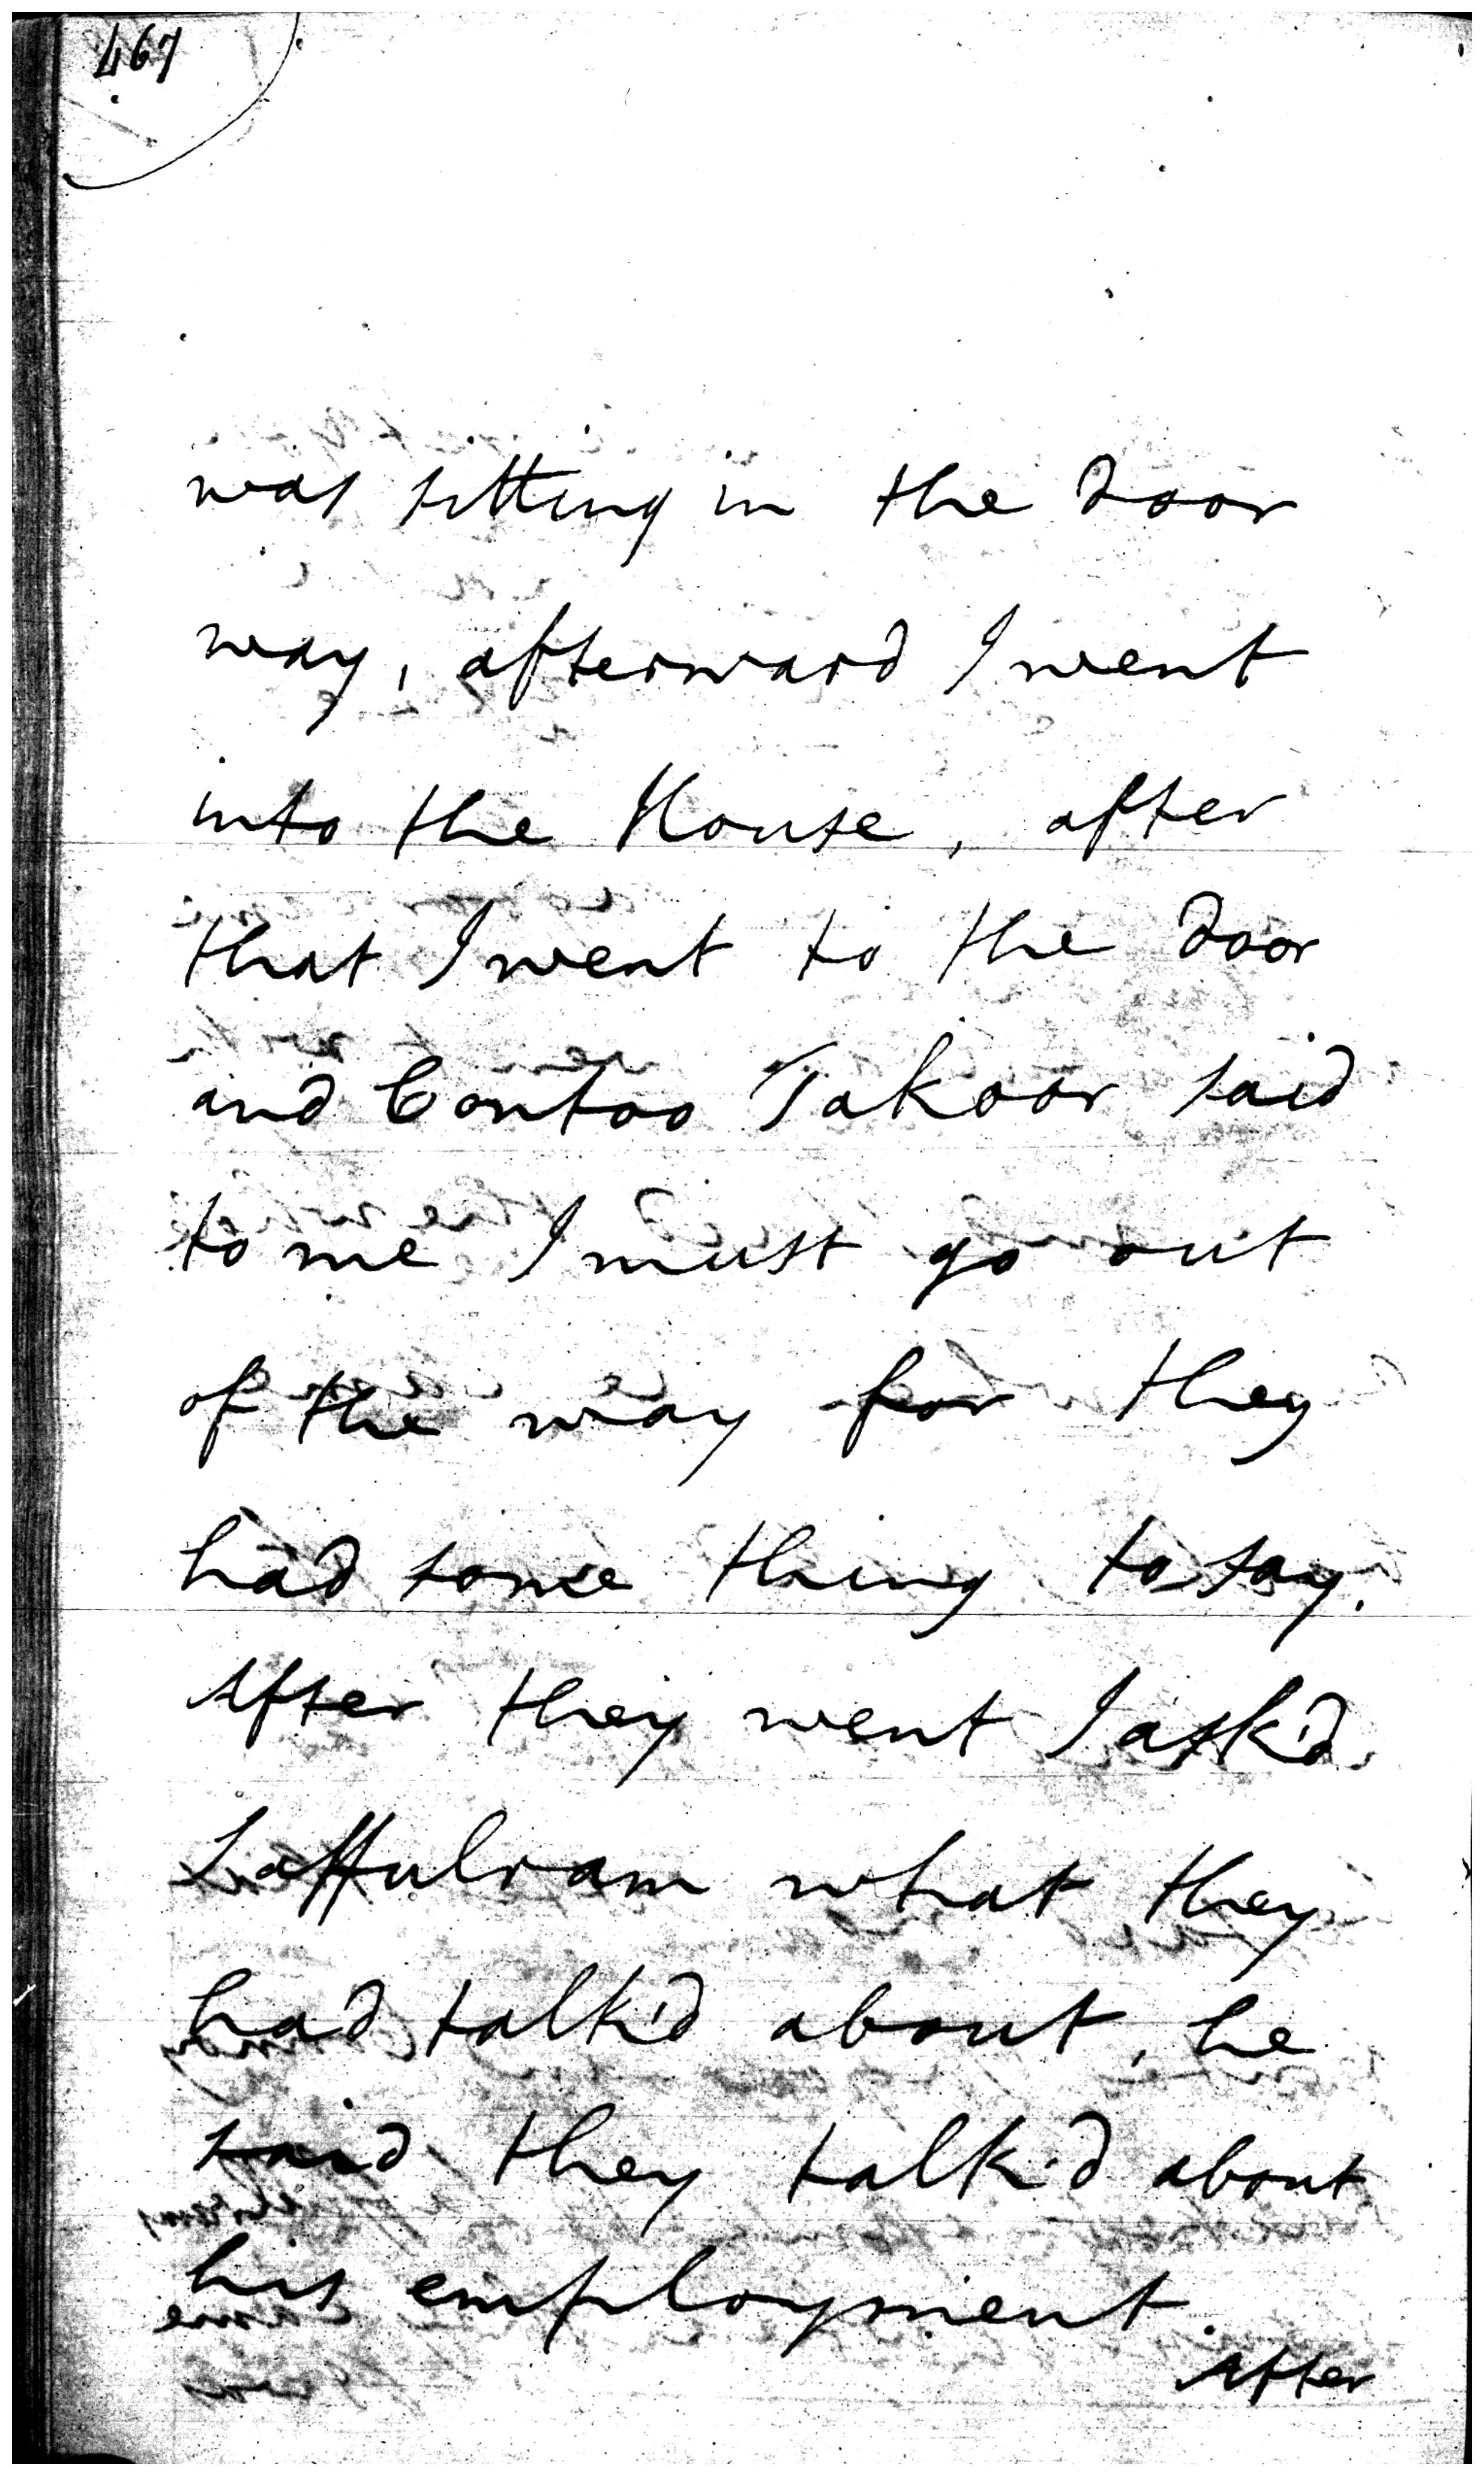 467
was sitting in the door
way, afterward I went
into the House, after
that I went to the door
and Contoo Takoor said
to me I must go out
of the way for they
had some thing to say.
After they went I ask'd
Laffulram what they
had talk'd about, he
said they talk'd about
his employment.
After